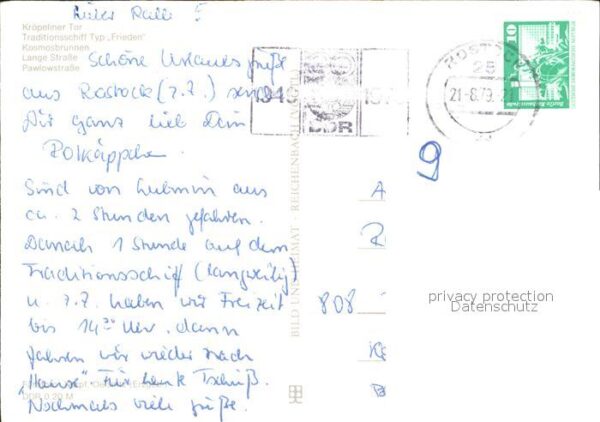 Lieber Ralle !
Kröpeliner Tor
Traditionsschiff Typ „Frieden"
Kosmosbrunnen
Lange Straße
Pawlowstraße
Schöne Urlaubsgrüße
aus Rostock (z.Z.) sendet
Dir ganz lieb Dein
Rotkäppchen.
Sind von Lubmin aus
ca. 2 Stunden gefahren.
Danach 1 Stunde auf dem
Traditionsschiff (langweilig)
u. z.Z. haben wir Freizeit
bis 14³⁰ Uhr. dann
fahren wir wieder nach
„Hause" Für heute Tschüß.
Nochmals viele Grüße.
DDR 0,20 M
BILD UND HEIMAT · REICHENBACH
1949
DDR
ROSTOCK
25
21-8.79.21
10
DDR
9
808
privacy protection
Datenschutz